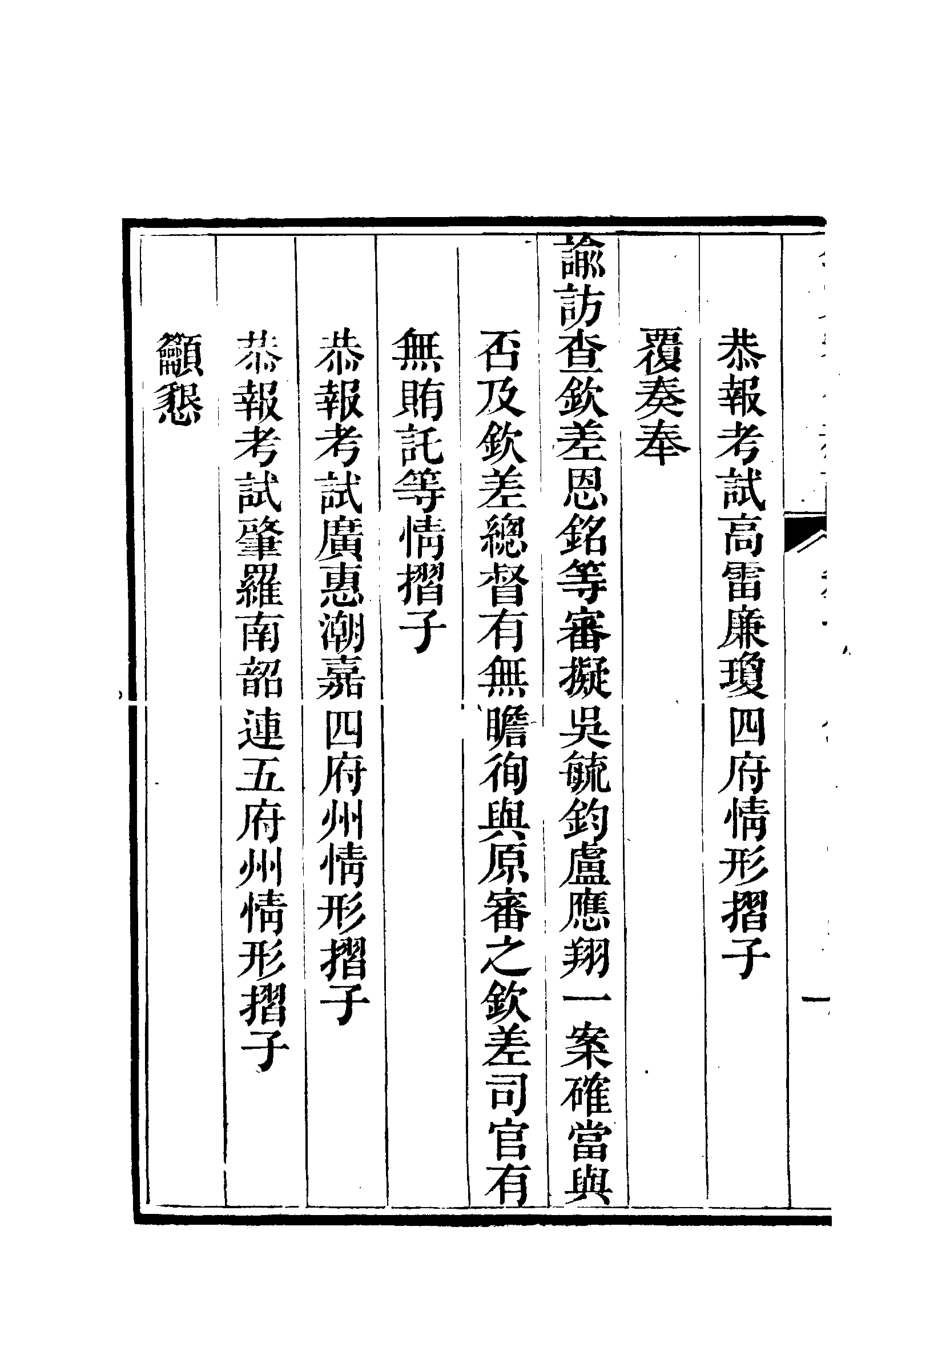 恭報考試高雷廉瓊四府情形摺子
覆奏奉
諭訪查欽差恩銘等審擬吳毓鈞盧應翔一案確當與
否及欽差總督有無瞻徇與原審之欽差司官有
無賄託等情摺子
恭報考試廣惠潮嘉四府州情形摺子
恭報考試肇羅南韶連五府州情形摺子
籲懇